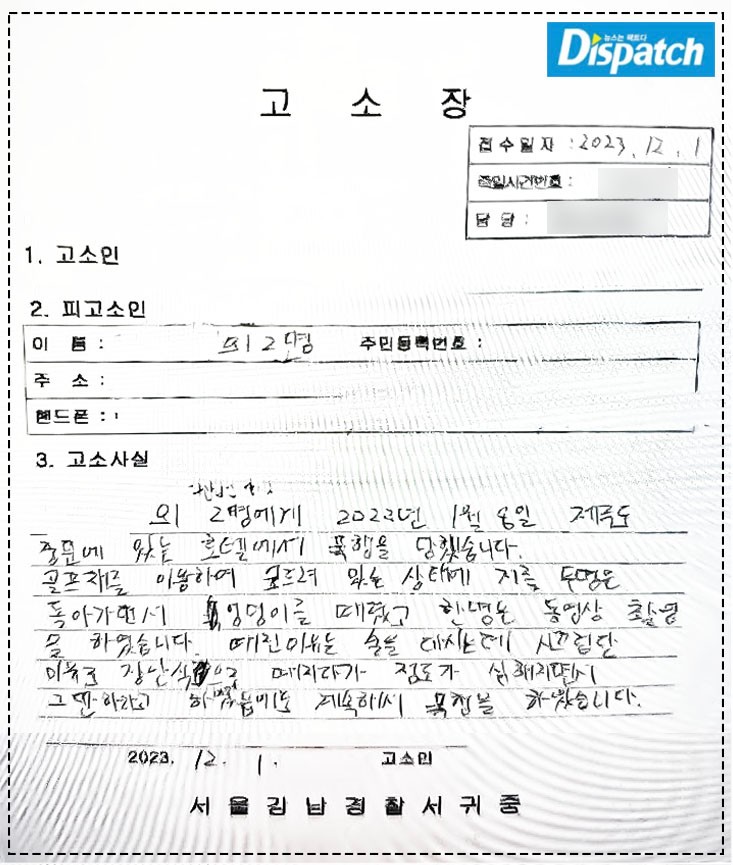 뉴스는 팩트다
Dispatch
고 소 장
접 수 일 자 : 2023. 12. 1
담 당 :
1. 고소인
2. 피고소인
이 름 : 외 2명 주민등록번호 :
주 소 :
핸드폰 :
3. 고소사실
외 2명에게 2023년 1월 8일 제주도
중문에 있는 호텔에서 폭행을 당했습니다.
골프채를 이용하여 엎드려 있는 상태에 저를 두명은
돌아가면서 엉덩이를 때렸고 한명은 동영상 촬영
을 하였습니다. 때린이유는 술을 마시는데 시끄럽단
이유로 장난식으로 때리다가 정도가 심해지면서
그만하라고 하였음에도 계속해서 폭행을 하였습니다.
2023. 12. 1. 고소인
서 울 강 남 경 찰 서 귀 중